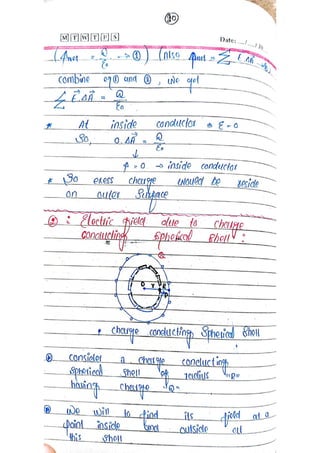 20
M T W T F S
Date:
(φnet = Q/ε₀ → ②) (also φnet = Σ E.ΔA
combine eq ① and ②, we get
Σ E⃗.ΔA⃗ = Q/ε₀
* At inside conductor E=0
So, 0.ΔA⃗ = Q/ε₀
↓
φ=0 → inside conductor
* So exess charge would be reside
on outer Surface
: Electric field due to charge
conducting spherical shell :
O r R
* charge conducting Spherical Shell
consider a charge conducting
spherical shell of radius "R"
having charge "Q"
we will to find its field at a
point inside and outside of
this shell